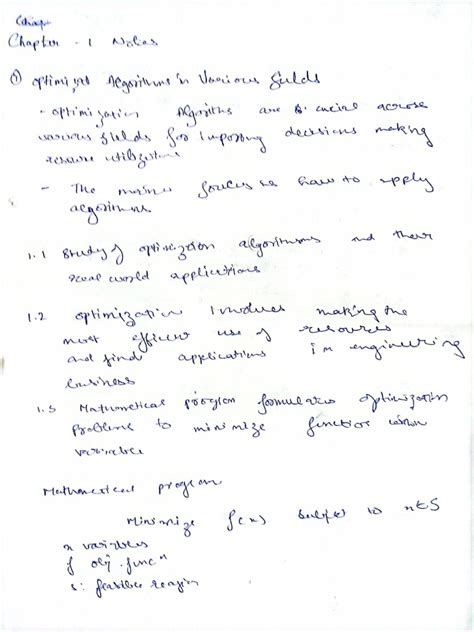 Chap
Chapter - 1 Notes
① optimized Algorithms in Various fields
- optimization Algoriths are crucial across
various fields for Improving decisions making
resource utilization
- The main focus is how to apply
algorithms
1.1 Study of optimization algorithms and their
real world applications
1.2 optimization Involves making the
most efficient use of resources
and find applications in engineering
business
1.3 Mathematical program formulates optimization
Problems to minimize function within
variable
Mathematical program
Minimize f(x) subject to x∈S
x variables
f obj. funcⁿ
S: feasible region